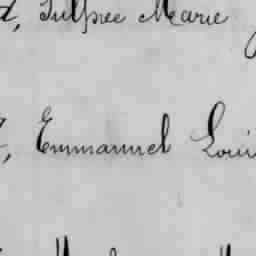 , Sulpree Marie
, Emmanuel Loui